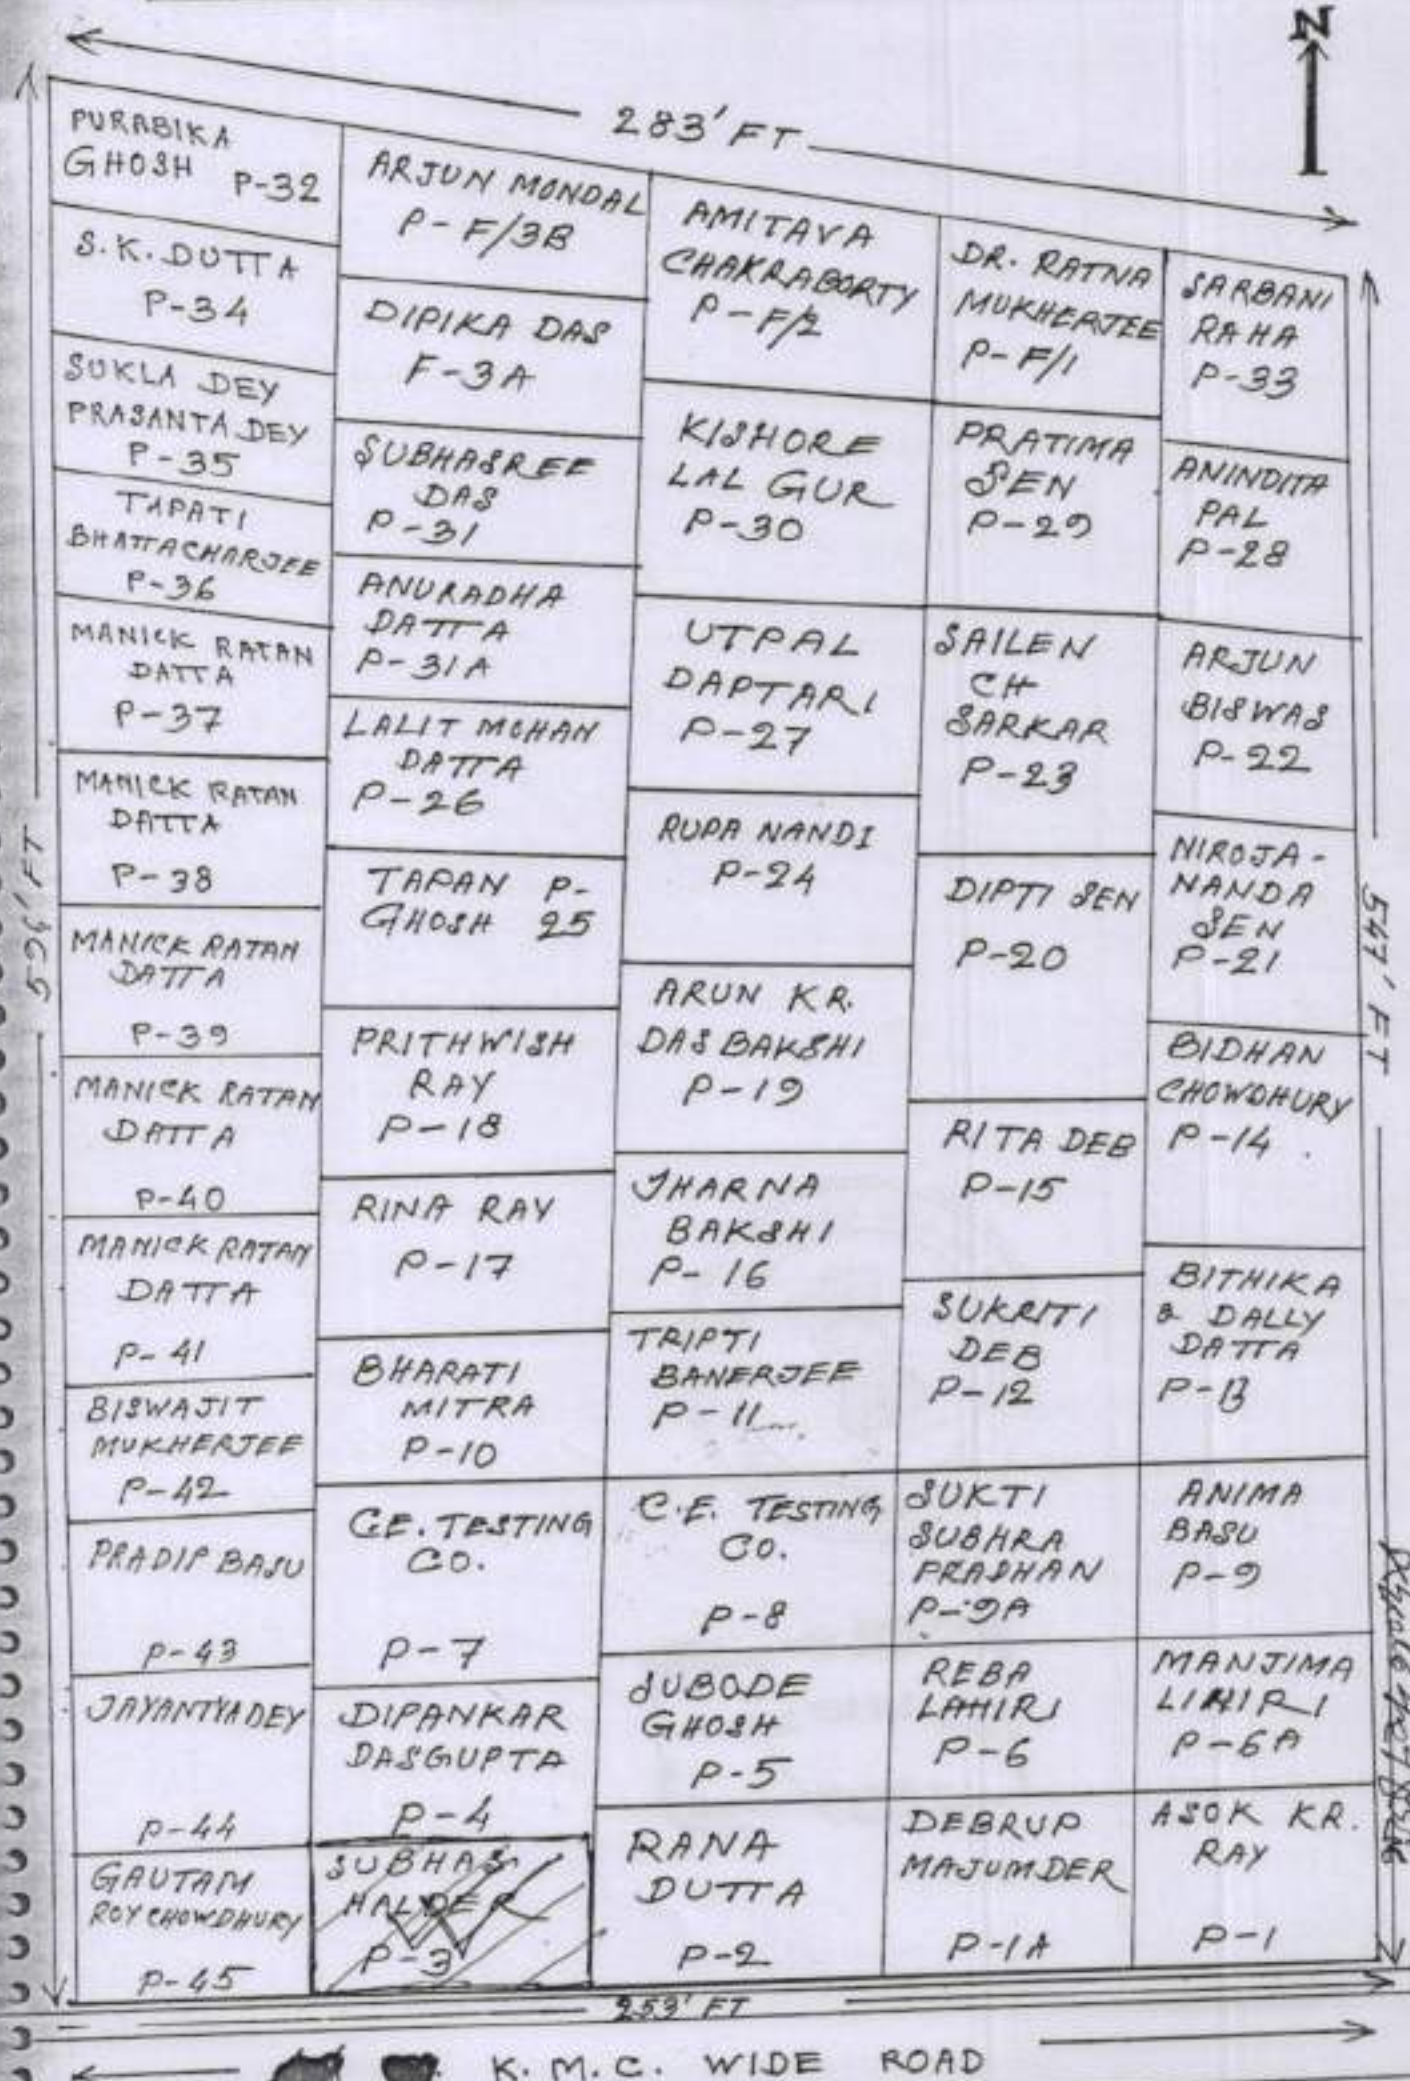 N
283' FT
PURABIKA
GHOSH P-32
S.K. DUTTA
P-34
SUKLA DEY
PRASANTA DEY
P-35
TAPATI
BHATTACHARJEE
P-36
MANICK RATAN
DATTA
P-37
MANICK RATAN
DATTA
P-38
MANICK RATAN
DATTA
P-39
MANICK RATAN
DATTA
P-40
MANICK RATAN
DATTA
P-41
BISWAJIT
MUKHERJEE
P-42
PRADIP BASU
P-43
JAYANTYA DEY
P-44
GAUTAM
ROY CHOWDHURY
P-45
ARJUN MONDAL
P-F/3B
DIPIKA DAS
F-3A
SUBHASREE
DAS
P-31
ANURADHA
DATTA
P-31A
LALIT MOHAN
DATTA
P-26
TAPAN P-
GHOSH 25
PRITHWISH
RAY
P-18
RINA RAY
P-17
BHARATI
MITRA
P-10
C.E. TESTING
CO.
P-7
DIPANKAR
DASGUPTA
P-4
SUBHAS
HALDER
P-3
AMITAVA
CHAKRABORTY
P-F/2
KISHORE
LAL GUR
P-30
UTPAL
DAPTARI
P-27
RUPA NANDI
P-24
ARUN KR.
DAS BAKSHI
P-19
JHARNA
BAKSHI
P-16
TRIPTI
BANERJEE
P-11
C.E. TESTING
CO.
P-8
SUBODE
GHOSH
P-5
RANA
DUTTA
P-2
DR. RATNA
MUKHERJEE
P-F/1
PRATIMA
SEN
P-29
SAILEN
CH
SARKAR
P-23
DIPTI SEN
P-20
RITA DEB
P-15
SUKRITI
DEB
P-12
SUKTI
SUBHRA
PRADHAN
P-9A
REBA
LAHIRI
P-6
DEBRUP
MAJUMDER
P-1A
SARBANI
RAHA
P-33
ANINDITA
PAL
P-28
ARJUN
BISWAS
P-22
NIROJA-
NANDA
SEN
P-21
BIDHAN
CHOWDHURY
P-14
BITHIKA
& DALLY
DATTA
P-13
ANIMA
BASU
P-9
MANJIMA
LIHIRI
P-6A
ASOK KR.
RAY
P-1
547' FT
253' FT
K.M.C. WIDE ROAD